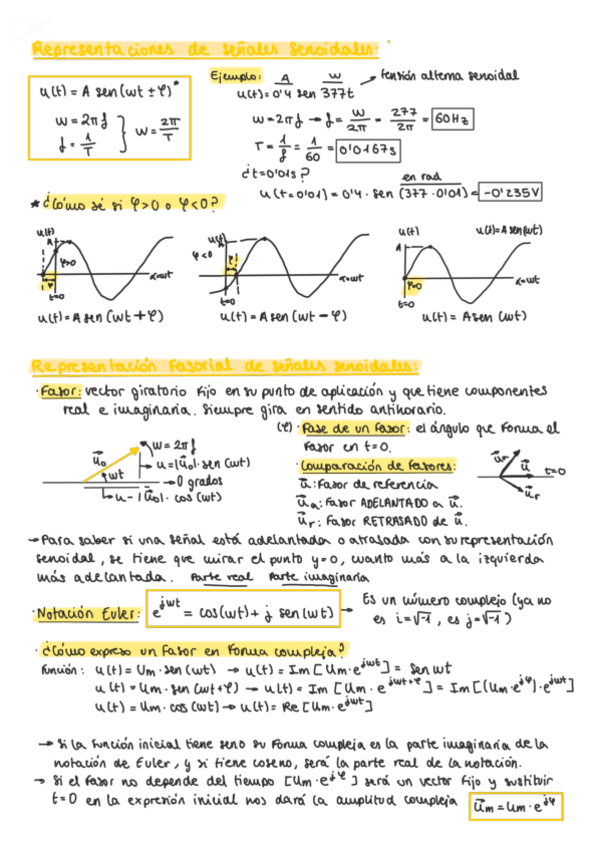 Representaciones de señales senoidales:
u(t) = A sen (wt ± φ)*
w = 2πf
f = 1/T } w = 2π/T
Ejemplo: A w → tensión alterna senoidal
u(t) = 0'4 sen 377t
w = 2πf → f = w/2π = 277/2π = 60Hz
T = 1/f = 1/60 = 0'0167s
¿t=0'01s?
en rad
u(t=0'01) = 0'4 · sen (377 · 0'01) = -0'235V
* ¿Cómo sé si φ>0 o φ<0?
u(t) A φ>0 φ t=0 α=wt
u(t) = A sen (wt + φ)
u(t) A φ<0 φ t=0 α=wt
u(t) = A sen (wt - φ)
u(t) u(t) = A sen(wt) A φ=0 t=0 α=wt
u(t) = A sen (wt)
Representación fasorial de señales senoidales:
· Fasor: vector giratorio fijo en su punto de aplicación y que tiene componentes
real e imaginaria. Siempre gira en sentido antihorario.
u⃗₀ wt w = 2πf
u = |u⃗₀| · sen (wt)
→ 0 grados
u - |u⃗₀| · cos (wt)
(φ) · Fase de un fasor: el ángulo que forma el
fasor en t=0.
· Comparación de fasores:
u⃗: Fasor de referencia
u⃗a: Fasor ADELANTADO a u⃗.
u⃗r: Fasor RETRASADO de u⃗.
u⃗ t=0
u⃗r
→ Para saber si una señal está adelantada o atrasada con su representación
senoidal, se tiene que mirar el punto y=0, cuanto más a la izquierda
más adelantada. Parte real Parte imaginaria
· Notación Euler: e^jwt = cos(wt) + j sen (wt) → Es un número complejo (ya no
es i=√-1, es j=√-1)
· ¿Cómo expreso un fasor en forma compleja?
Función: u(t) = Um · sen (wt) → u(t) = Im [Um · e^jwt] = sen wt
u(t) = Um · sen (wt+φ) → u(t) = Im [Um · e^jwt+φ] = Im [(Um · e^jφ) · e^jwt]
u(t) = Um · cos (wt) → u(t) = Re [Um · e^jwt]
→ Si la función inicial tiene seno su forma compleja es la parte imaginaria de la
notación de Euler, y si tiene coseno, será la parte real de la notación.
→ Si el fasor no depende del tiempo [Um · e^jφ] será un vector fijo y sustituir
t=0 en la expresión inicial nos dará la amplitud compleja u⃗m = Um · e^jφ